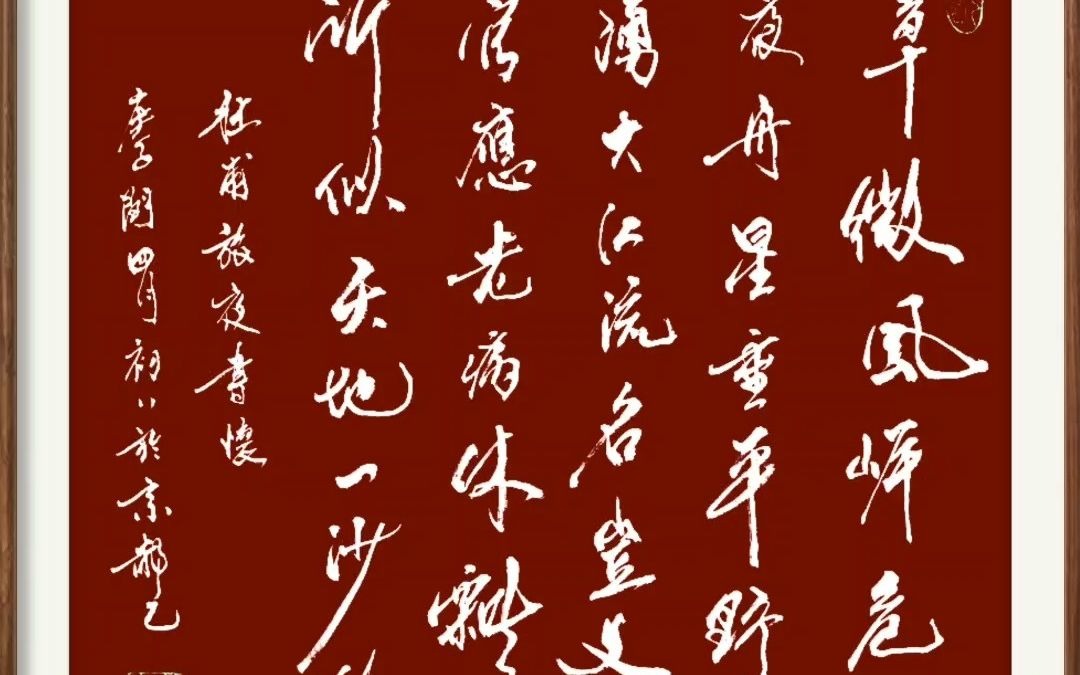 草微風岸危
夜舟星垂平野
湧大江流名豈文
官應老病休飄
所似天地一沙
杜甫旅夜書懷
四月初八於京